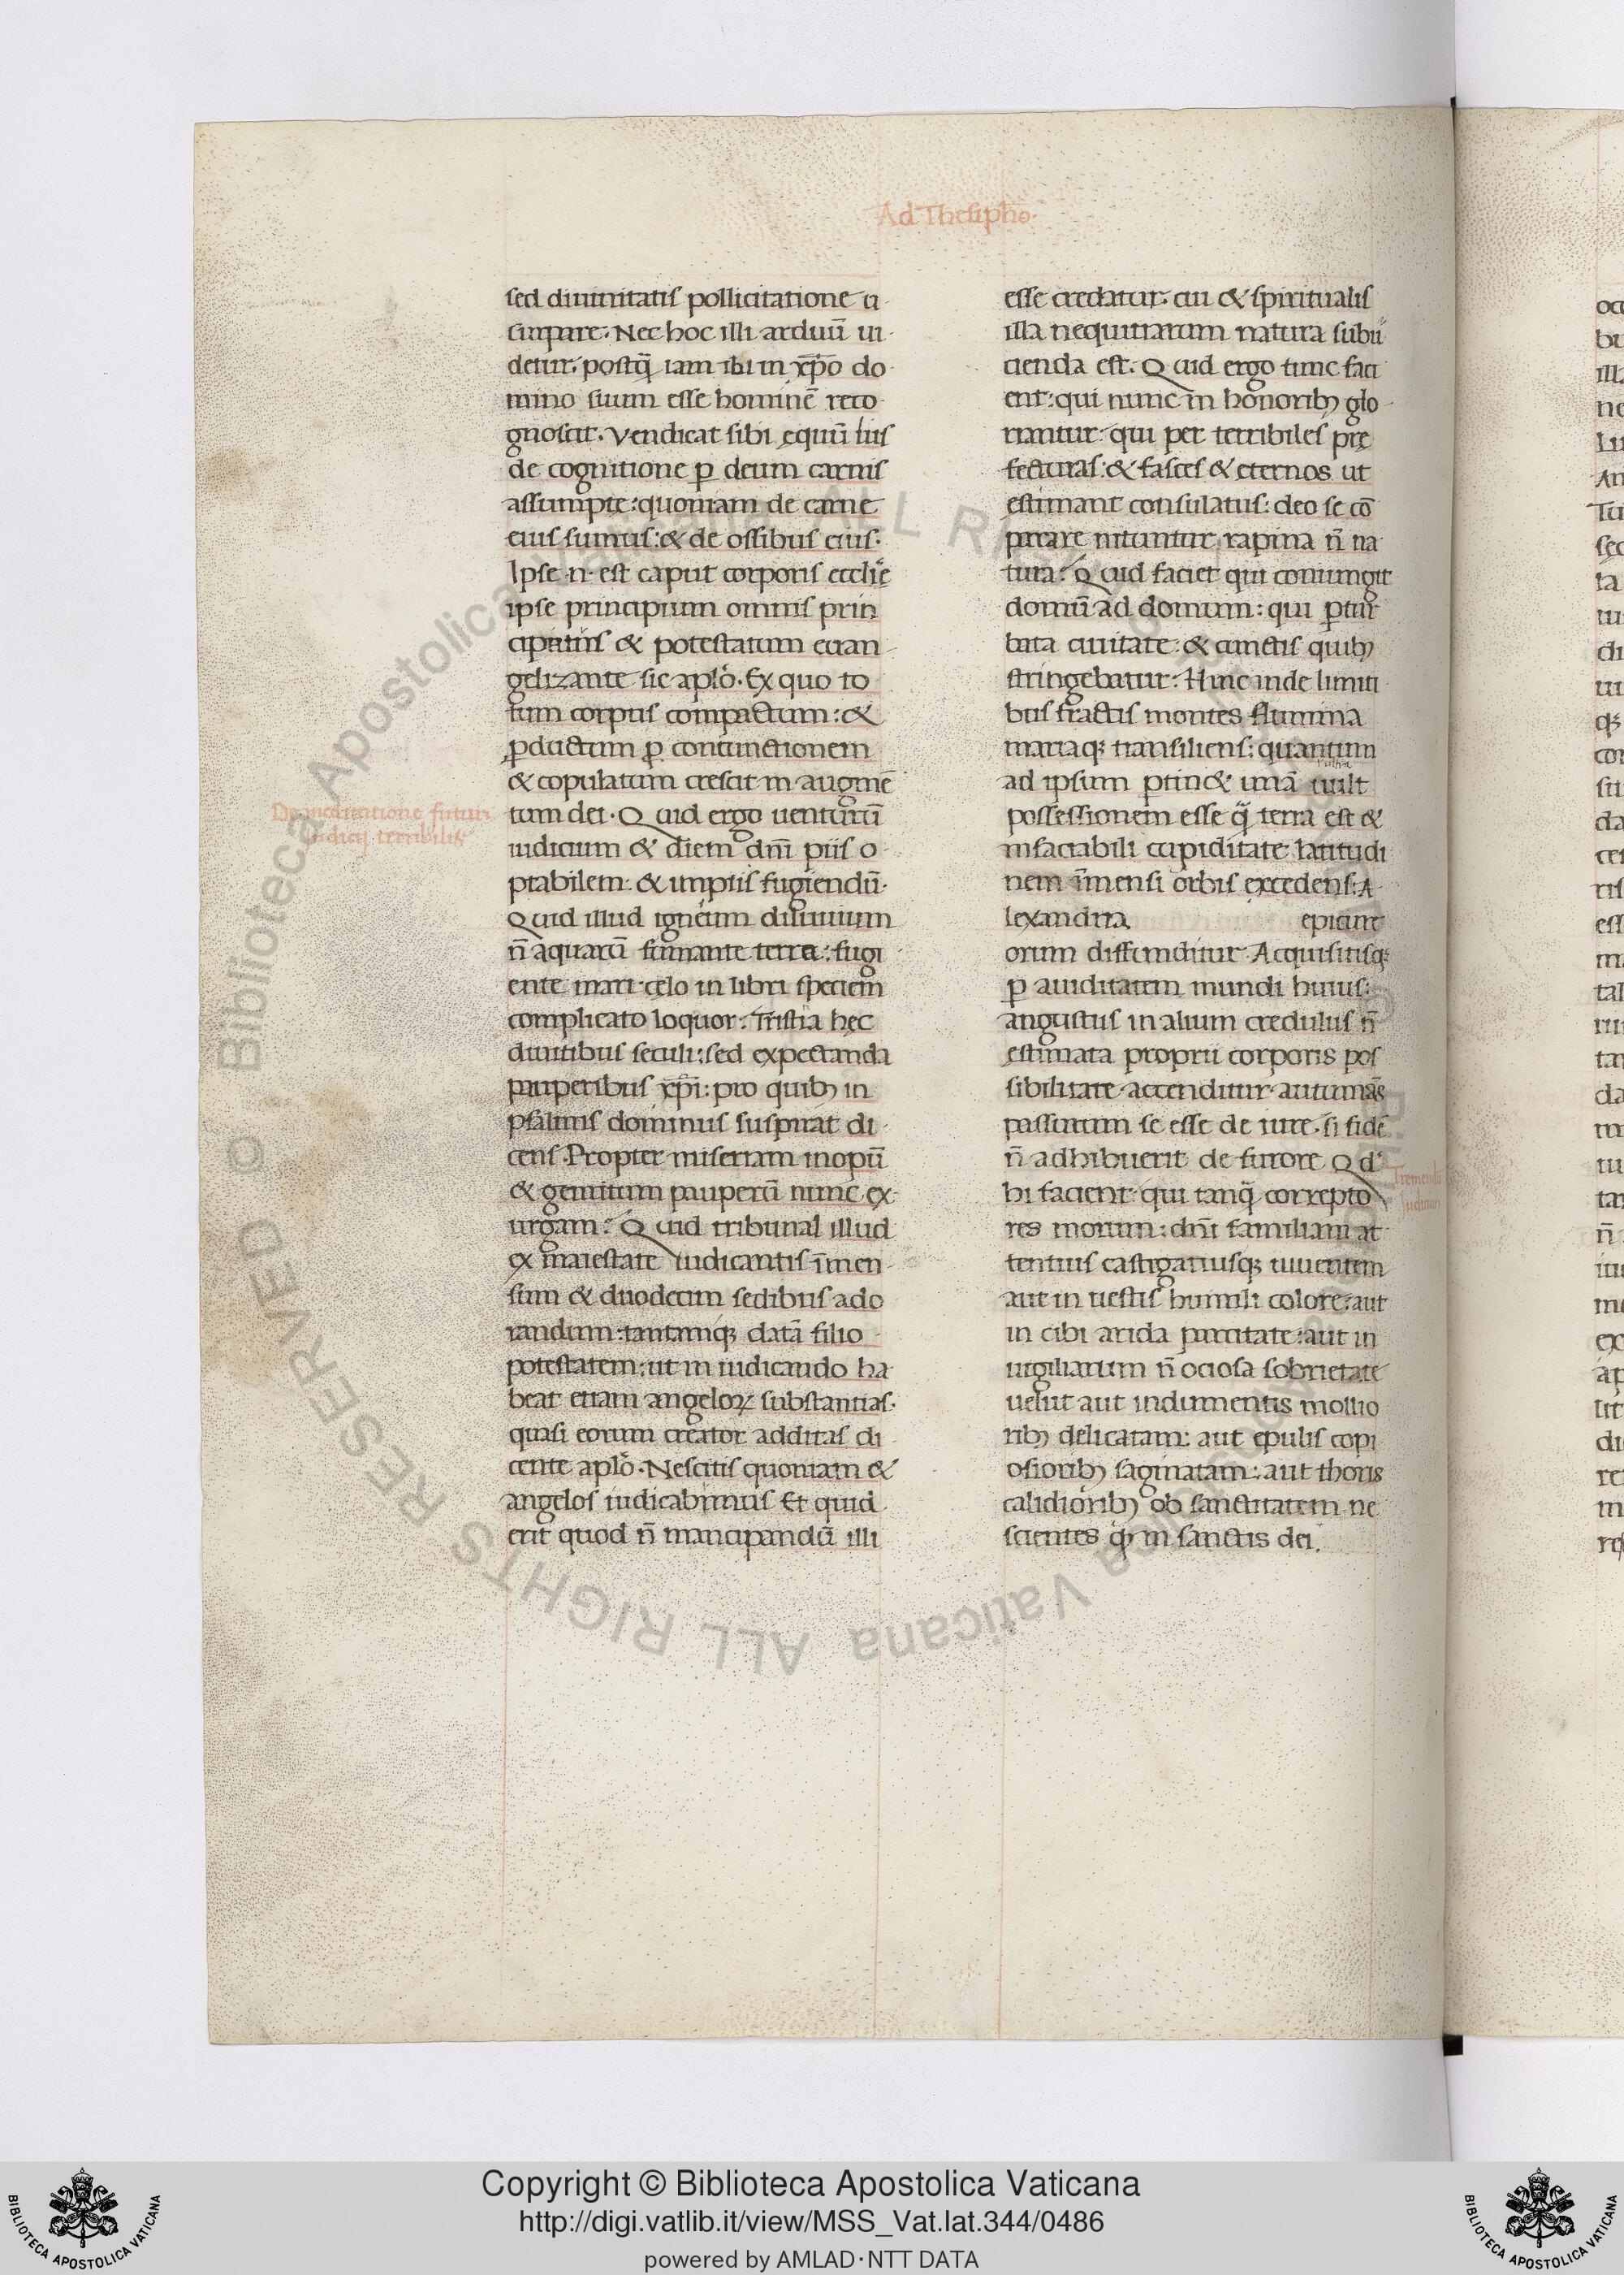 Ad Thesipho·
sed diuinitatis pollicitatione u
surpare. Nec hoc illi arduū ui
detur: postq̄ iam ibi in xp̄o do
mino suum esse hominē reco
gnoscit. Vendicat sibi equū ius
de cognitione ꝑ deum carnis
assumpte: quoniam de carne
eius sumus: & de ossibus eius.
Ipse ·n· est caput corporis eccl̄ie
ipse principium omnis prin
cipatus & potestatum euan
gelizante sic apl̄o. Ex quo to
tum corpus compactum: &
ꝑductum ꝑ coniunctionem
& copulatum crescit in augmē
tum dei. Quid ergo uenturū
iudicium & diem dn̄i piis o
ptabilem: & impiis fugiendū.
Quid illud igneum diluuium
n̄ aquarū fumante terra: fugi
ente mari celo in libri speciem
complicato loquor: Tristia hęc
diuitibus seculi: sed expectanda
pauperibus xp̄i: pro quibꝫ in
psalmis dominus suspirat di
cens. Propter miseriam inopū
& gemitum pauperū nunc ex
urgam: Quid tribunal illud
ex maiestate iudicantis īmen
sum & duodecim sedibus ado
randum: tantamqꝫ datā filio
potestatem: ut in iudicando ha
beat etiam angeloꝝ substantias.
quasi eorum creator additas di
cente apl̄o. Nescitis quoniam &
angelos iudicabimus Et quid
erit quod n̄ mancipandū illi
De meditatione futuri
iudicij terribilis
esse credatur: cui & spiritualis
illa nequitiarum natura subii
cienda est. Quid ergo tunc faci
ent: qui nunc in honoribꝫ glo
riantur: qui per terribiles pre
fecturas: & fasces & eternos ut
estimant consulatus: deo se cō
parare nituntur, rapina n̄ na
tura: Quid faciet qui coniungit
domū ad domum: qui ꝑtur
bata ciuitate: & cunctis quibꝫ
stringebatur: Hinc inde limiti
bus fractis montes flumina
mariaqꝫ transiliens: quantum
ad ipsum ꝑtin& unā uult
possessionem esse q̄ terra est &
insaciabili cupiditate latitudi
nem īmensi orbis excedens: A
lexandria epicure
orum diffunditur Acquisitisqꝫ
ꝑ auiditatem mundi huius:
angustus in alium credulus n̄
estimata proprii corporis pos
sibilitate accenditur autumās
passurum se esse de iure. si fidē
n̄ adhibuerit de furore Qd̄
hi facient: qui tanq̄ correpto
res morum: dn̄i familiam at
tentius castigatiusqꝫ uiuentem
aut in uestis humili colore: aut
in cibi arida parcitate: aut in
uigiliarum n̄ ociosa sobrietate
uelut aut indumentis mollio
ribꝫ delicatam: aut epulis copi
osioribꝫ saginatam: aut thoris
calidioribꝫ ob sanctitatem ne
scientes qꝫ in sanctis dei.
Tremendū
iudicium
Copyright © Biblioteca Apostolica Vaticana
http://digi.vatlib.it/view/MSS_Vat.lat.344/0486
powered by AMLAD·NTT DATA
BIBLIOTECA APOSTOLICA VATICANA
BIBLIOTECA APOSTOLICA VATICANA